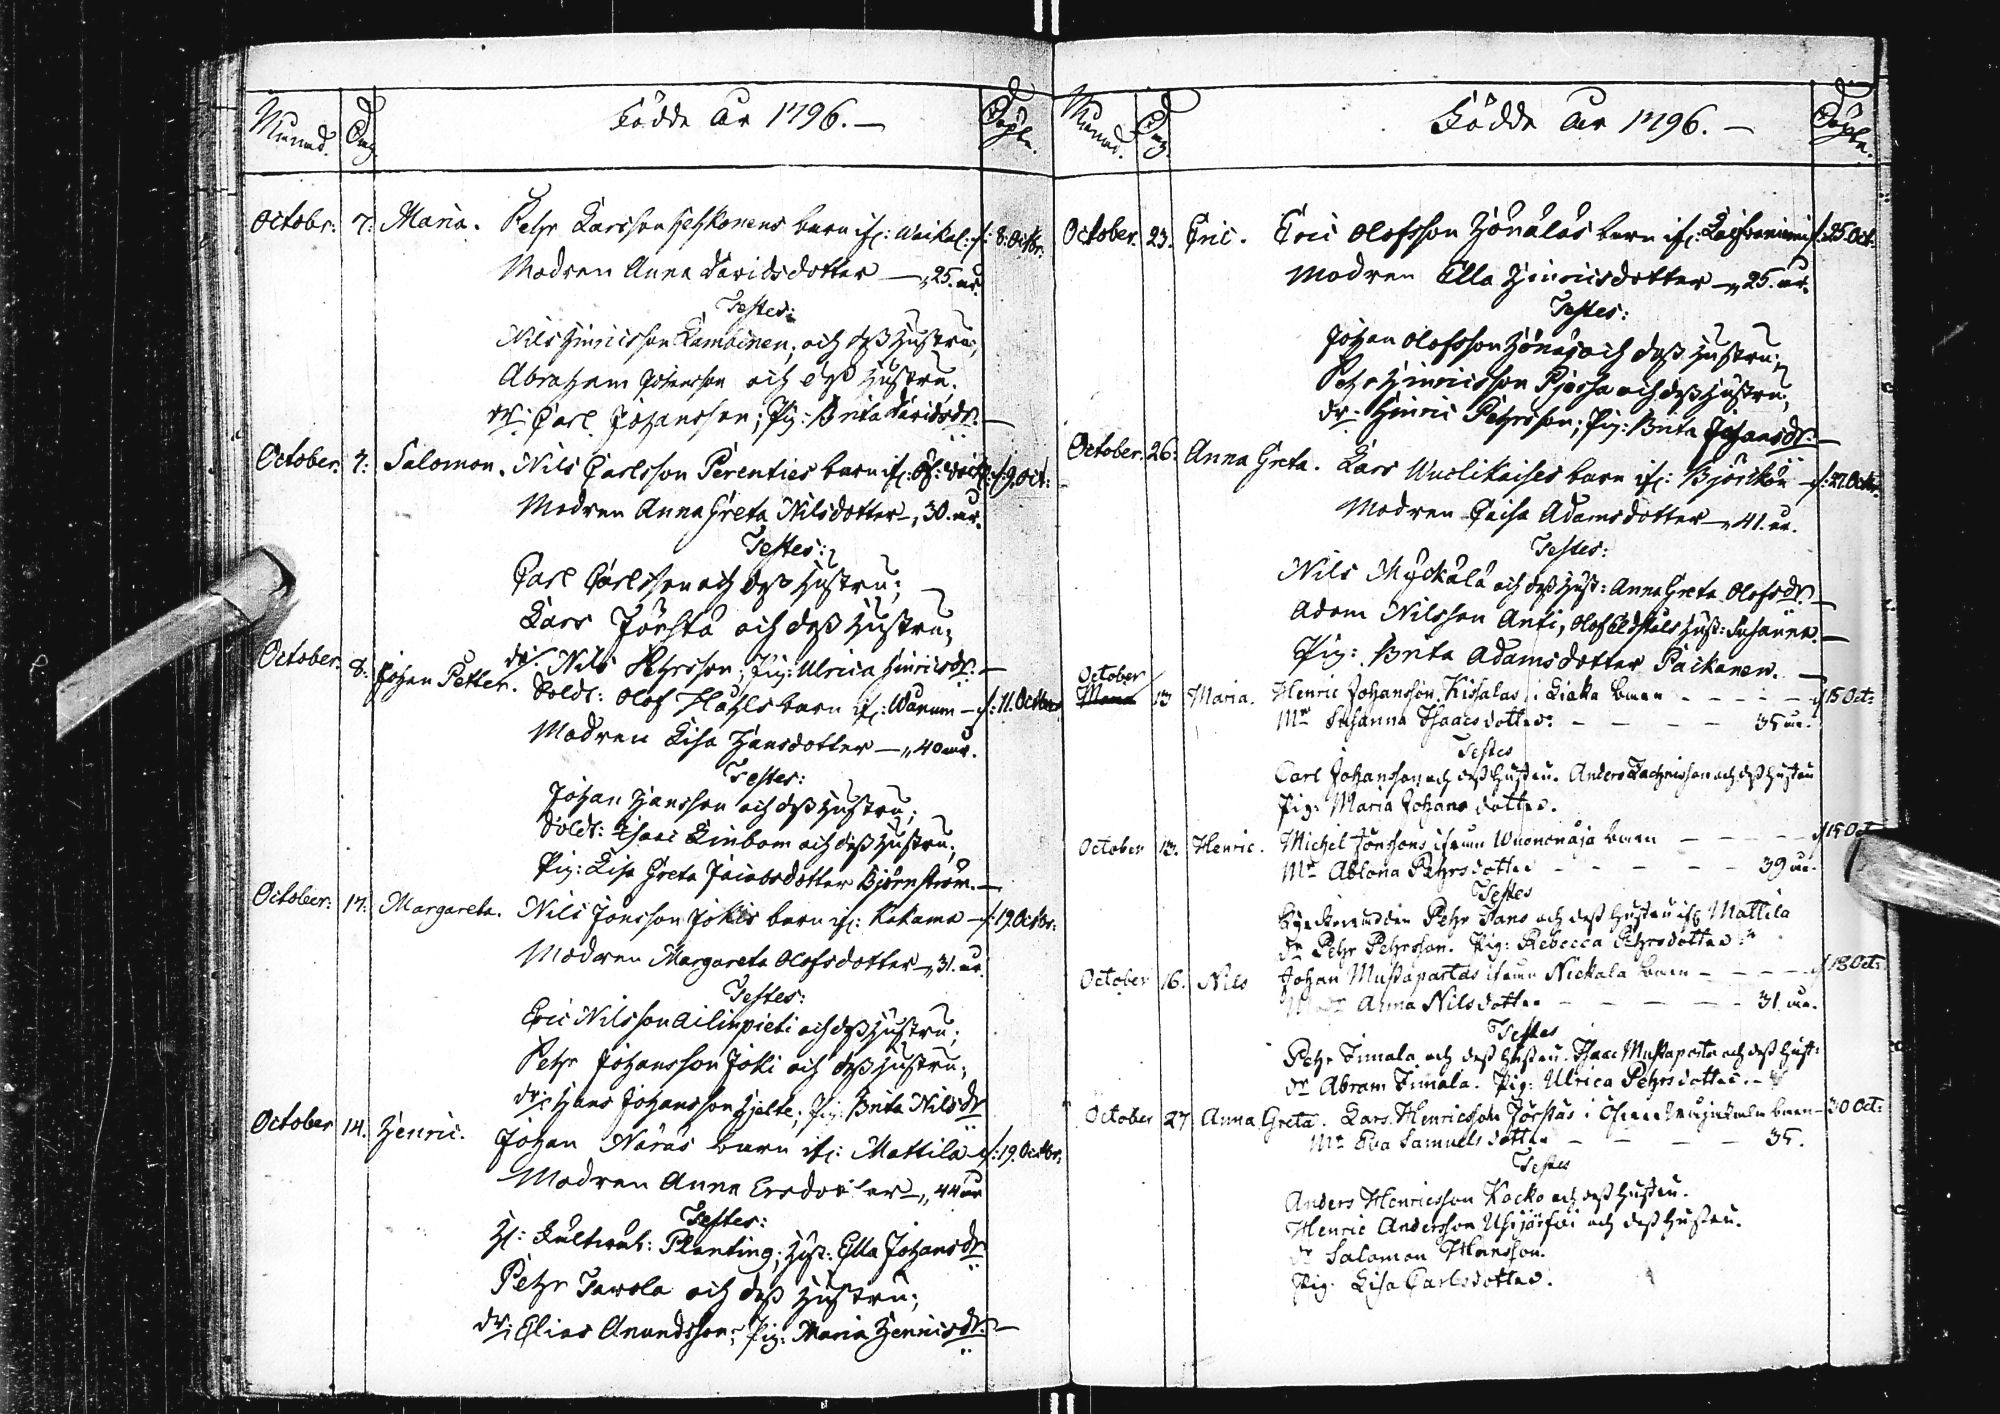 Månad. Dag. Födde År 1796. — Döpte.
October: 7: Maria. Pehr Larsson barn ifr: d: 8: Octbr:
Modren Anna Davidsdotter — 25. år.
Testes:
Nils Hinricsson Kamoinen, och dess Hustru;
Abraham Johansson och dess Hustru.
dr: Carl Johansson; Pig: Brita Davidsdr. —
October: 7: Salomon. Nils Carlsson Perenties barn ifr: d: 9. Oct:
Modren Anna Greta Nilsdotter — 30. år.
Testes:
Carl Carlsson och dess Hustru;
Lars Jörstä och dess Hustru;
dr: Nils Pehrsson; Pig: Ulrica Hinricsdr. —
October: 8: Johan Petter. Soldt: Olof Håhls barn ifr: — d: 11. Octbr
Modren Lisa Hansdotter — 40 år.
Testes:
Johan Hansson och dess Hustru;
Soldt: Isaac Linbom och dess Hustru;
Pig: Lisa Greta Jacobsdotter Björnström. —
October: 17: Margareta. Nils Jönsson Jokis barn ifr: Kakama — d: 19. Octbr:
Modren Margareta Olofsdotter — 31. år.
Testes:
Eric Nilsson Ailinpieti och dess Hustru;
Pehr Johansson Joki och dess Hustru;
dr: Hans Johansson Hjelte; Pig: Brita Nilsdr
October 14. Henric. Johan Naras barn ifr: Mattila d: 19. Octbr:
Modren Anna Ersdotter — 44 år
Testes:
H: Planting; Hust: Ella Johansdr
Pehr Tawola och dess Hustru;
dr: Elias Anundsson; Pig: Maria Henricsdr. —
Månad. Dag. Födde År 1796. — Döpte.
October. 23. Eric. Eric Olofsson barn ifr: d: 25. Oct:
Modren Ella Hinricsdotter — 25. år.
Testes:
Johan Olofsson och dess Hustru;
Pehr Hinricsson och dess Hustru;
dr: Hinric Pehrsson; Pig: Brita Johansdr. —
October. 26: Anna Greta. Lars Wuolikaises barn ifr: Björckön — d: 27. Octbr.
Modren Caisa Adamsdotter — 41. år.
Testes:
Nils Myckälä och dess Hust: Anna Greta Olofsdr. —
Adam Nilsson Anti, Olof Hust: Susanna. —
Pig: Brita Adamsdotter Packanen. —
October 13 Maria. Henric Johansson Kissalas i Liaka barn — — — d 15 Oct:
Mr Susanna Isaacsdotter: — — — — 35 år.
Testes
Carl Johansson och dess Hustru. Anders Zachrisson och dess Hustru
Pig: Maria Johansdotter.
October 13. Henric. Michel Jönssons ifrån Wuononäja barn — — — d 15 Oct
Mr Ablona Pehrsdotter — — — — 39 år.
Testes
Pehr Tano och dess Hustru ifr Mattila
dr Pehr Pehrsson. Pig: Rebecca Pehrsdotter
October 16. Nils Johan Mustapartas ifrån Nickala barn — — — d 18 Oct:
Anna Nilsdotter — — — — 31 år.
Testes
Pehr Simala och dess Hustru. Isaac Mustaparta och dess Hust:
dr Abram Simala. Pig: Ulrica Pehrsdotter. —
October 27 Anna Greta. Lars Henricsson Jörstäs i barn — 30 Oct:
Mr Eva Samuelsdotter — — — — 35.
Testes
Anders Henricsson Kocko och dess Hustru.
Henric Andersson och dess Hustru.
dr Salomon Hansson.
Pig. Lisa Carlsdotter.